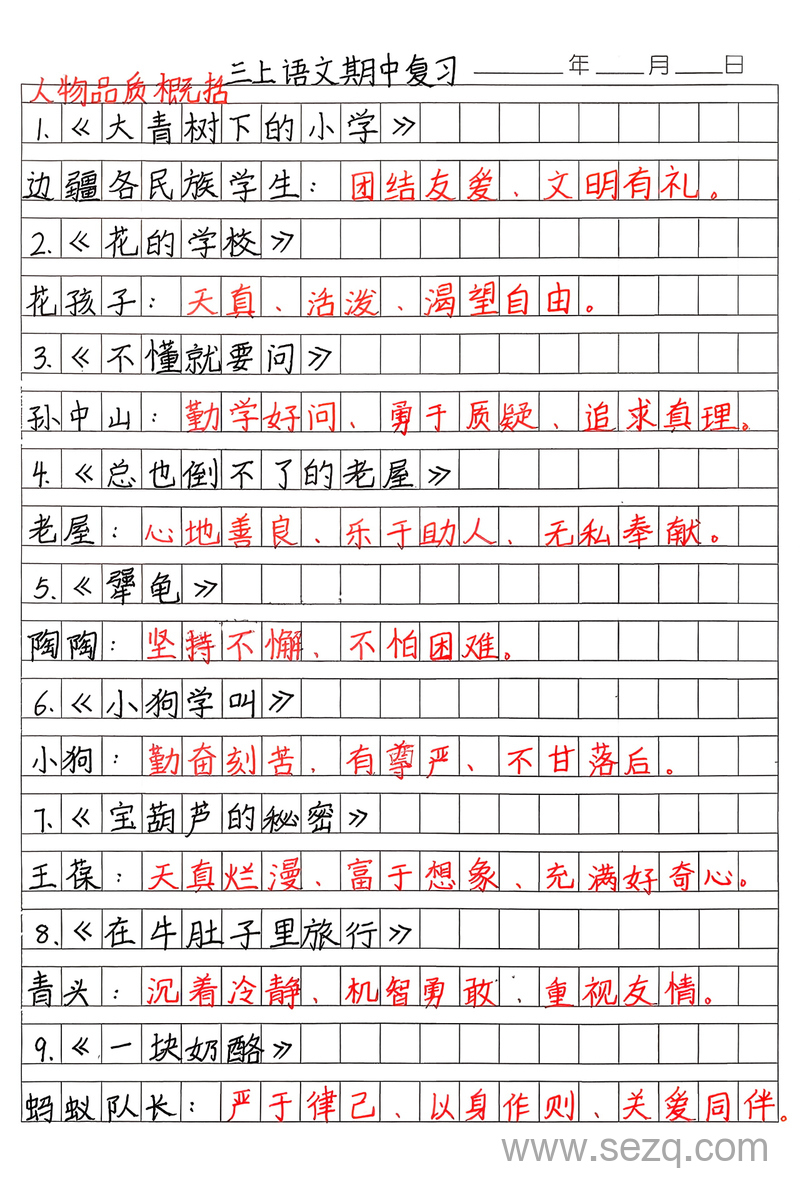 三上语文期中复习 ______年___月___日
人物品质概括
1.《大青树下的小学》
边疆各民族学生：团结友爱、文明有礼。
2.《花的学校》
花孩子：天真、活泼、渴望自由。
3.《不懂就要问》
孙中山：勤学好问、勇于质疑、追求真理。
4.《总也倒不了的老屋》
老屋：心地善良、乐于助人、无私奉献。
5.《犟龟》
陶陶：坚持不懈、不怕困难。
6.《小狗学叫》
小狗：勤奋刻苦、有尊严、不甘落后。
7.《宝葫芦的秘密》
王葆：天真烂漫、富于想象、充满好奇心。
8.《在牛肚子里旅行》
青头：沉着冷静、机智勇敢、重视友情。
9.《一块奶酪》
蚂蚁队长：严于律己、以身作则、关爱同伴。
www.sezq.com